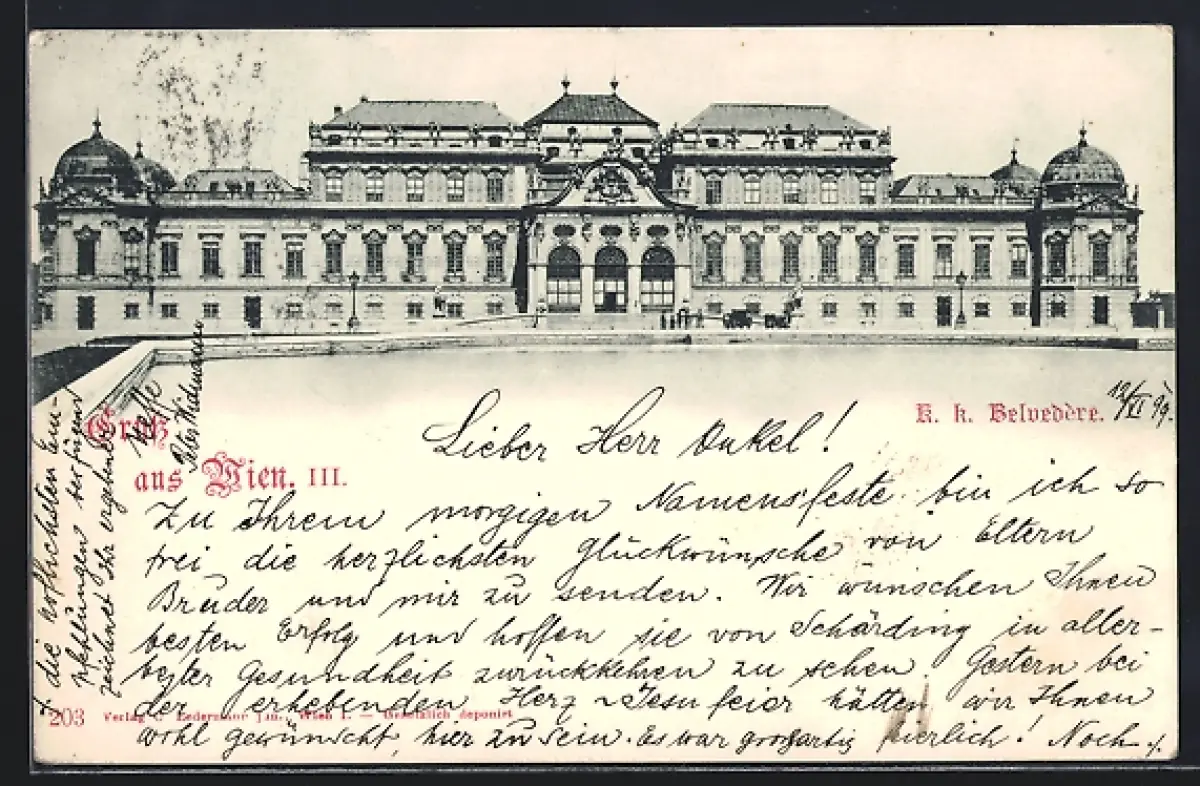 Gruß
aus Wien. III.
K. k. Belvedère.
12/VI 99.
Lieber Herr Onkel!
Zu Ihrem morgigen Namensfeste bin ich so
frei, die herzlichsten Glückwünsche von Eltern
Brüder und mir zu senden. Wir wünschen Ihnen
besten Erfolg und hoffen sie von Schärding in aller-
bester Gesundheit zurückkehren zu sehen. Gestern bei
der erhebenden Herz-Jesufeier hätten wir Ihnen
wohl gewünscht, hier zu sein. Es war großartig feierlich! Noch ./.
+ die höflichsten Em-
pfehlungen
zeichnet Ihr ergebener
Neffe
Peter Widmann
203 Verlag C. Ledermann jun., Wien I. — Gesetzlich deponirt